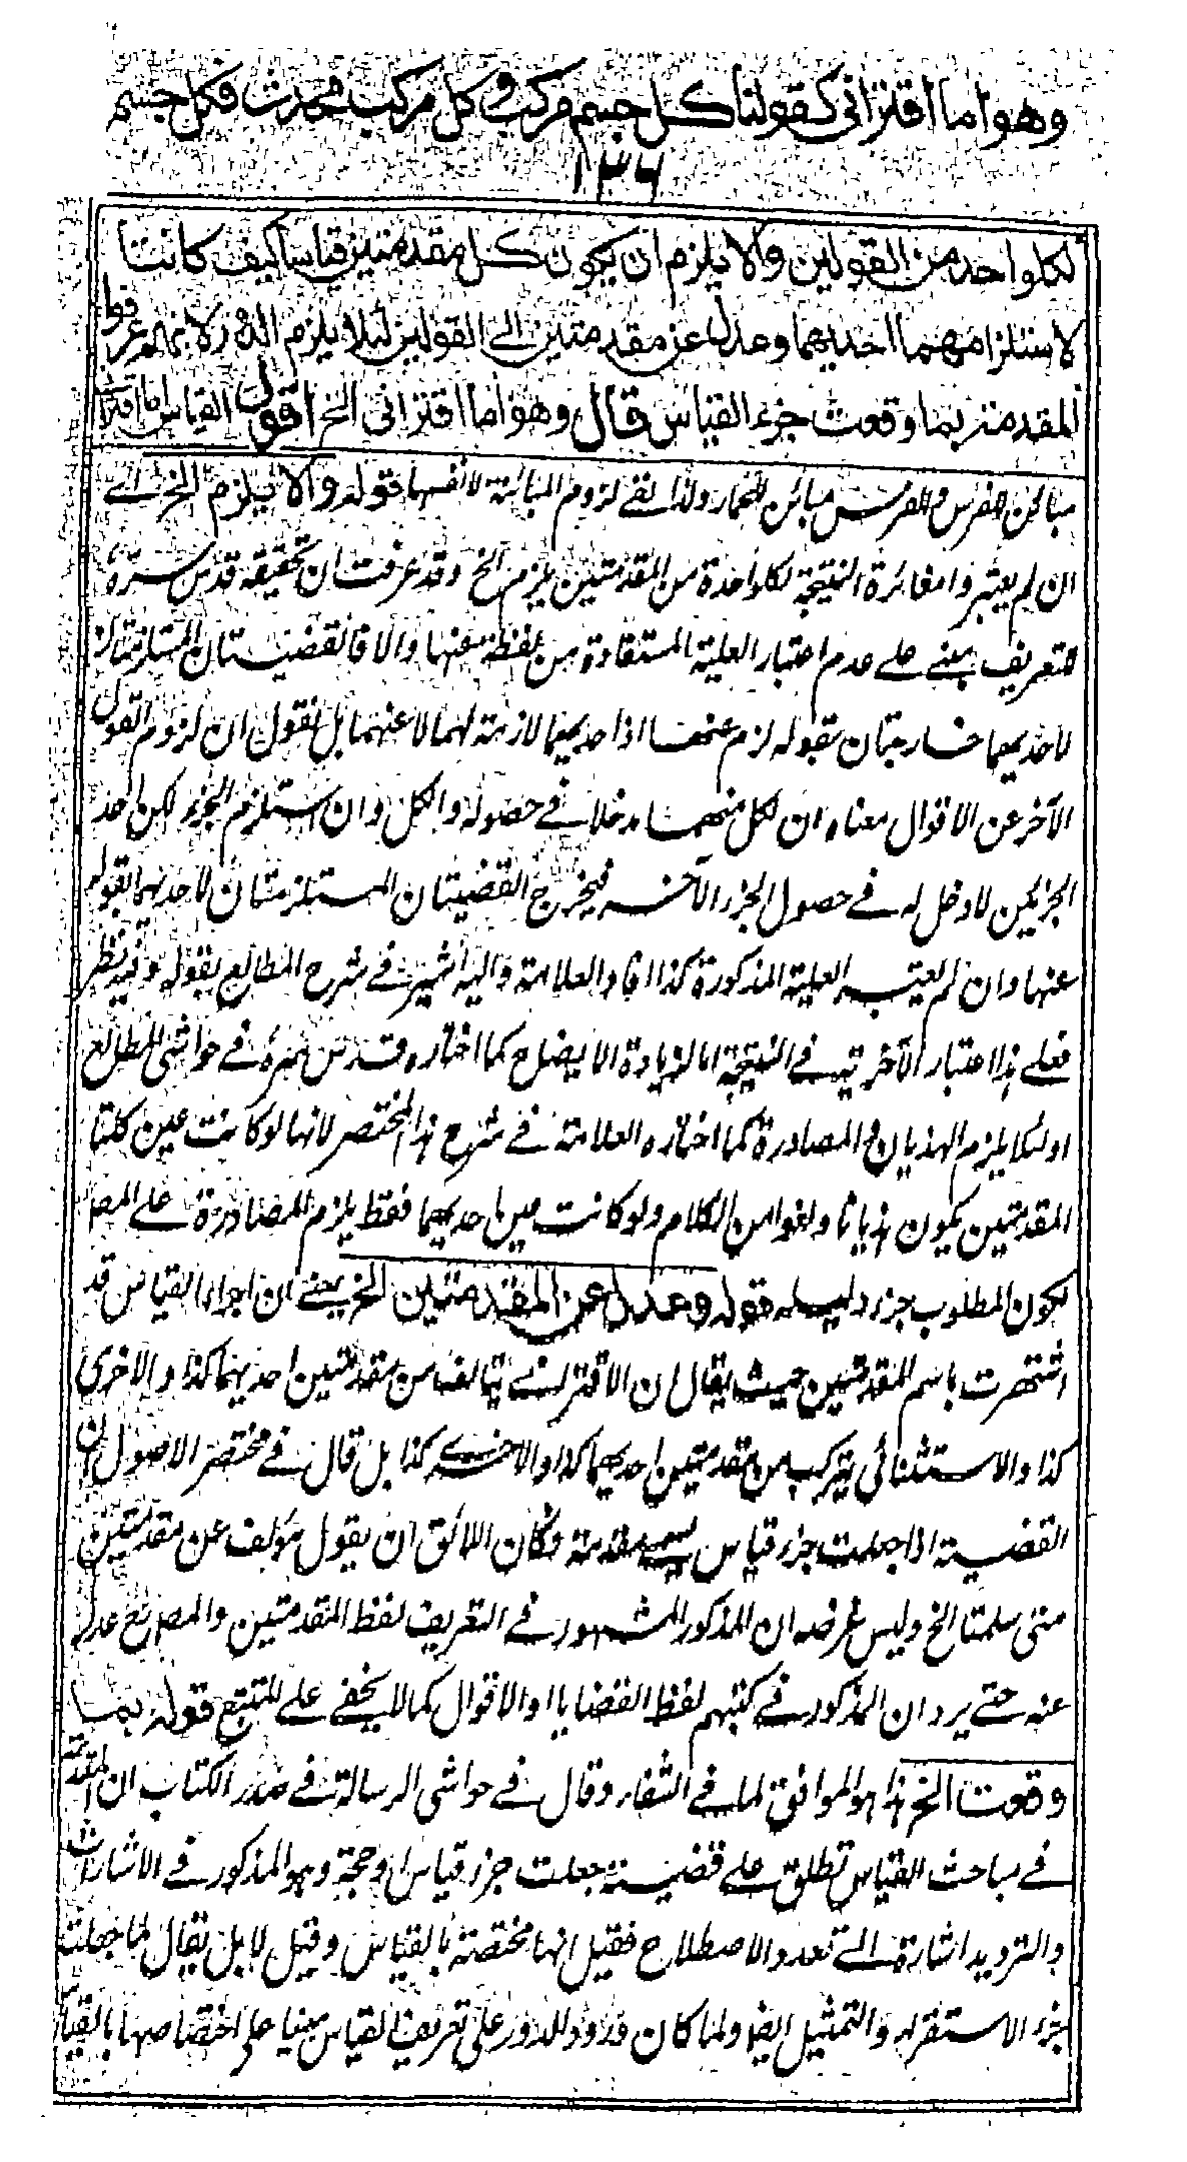 وهو اما اقترانى كقولنا كل جسم مركب وكل مركب محدث فكل جسم
١٣٦
لكل واحد من القولين والا يلزم ان يكون كل مقدمتين قياسا كيف كانتا
لاستلزامهما احديهما وعدل عن مقدمتين الى القولين لئلا يلزم الدور لانهم عرفوا
المقدمة بما وقعت جزء القياس قال وهو اما اقترانى الخ اقول القياس اما اقترانى
مبائن للفرس والفرس مبائن للحمار ولذا لقے لزوم المبائنة لانفسها قوله والا يلزم الخ اے
ان لم يعتبروا مغائرة النتيجة لكل واحدة من المقدمتين يلزم الخ وقد عرفت ان تحقيقه قدس سره
للتعريف مبنے علے عدم اعتبار العلية المستفادة من لفظة عنها والا فالقضيتان المستلزمتان
لاحديهما خارجتان بقوله لزم عنهما اذ احديهما لازمة لهما لا عنهما بل نقول ان لزوم القول
الآخر عن الاقوال معناه ان لكل منهما مدخلا فے حصوله والكل وان استلزم الجزء لكن احد
الجزئين لا دخل له فے حصول الجزء الآخر فيخرج القضيتان المستلزمتان لاحديهما بقوله
عنها وان لم يعتبر العلية المذكورة كذا افاد العلامة واليه اشير فے شرح المطالع بقوله وفيه نظر
فعلے هذا اعتبار الآخرية فے النتيجة اما لزيادة الايضاح كما اختاره قدس سره فے حواشى المطالع
او لئلا يلزم الهذيان والمصادرة كما اختاره العلامة فے شرح هذا المختصر لانها لو كانت عين كلتا
المقدمتين يكون هذيانا ولغوا من الكلام ولو كانت عين احديهما فقط يلزم المصادرة علے المط
لكون المطلوب جزء دليله قوله وعدل عن المقدمتين الخ يعنے ان اجزاء القياس قد
اشتهرت باسم المقدمتين حيث يقال ان الاقترانے يتالف من مقدمتين احديهما كذا والاخرى
كذا والاستثنائى يتركب من مقدمتين احديهما كذا والاخرے كذا بل قال فے مختصر الاصول ان
القضية اذا جعلت جزء قياس تسمے مقدمة فكان اللائق ان يقول مؤلف عن مقدمتين
متى سلمتا الخ وليس غرضه ان المذكور المشهور فے التعريف لفظ المقدمتين والمصنف عدل
عنه حتے يرد ان المذكور فے كتبهم لفظ القضايا او الاقوال كما لا يخفے علے المتتبع قوله بما
وقعت الخ هذا هو الموافق لما فے الشفاء وقال فے حواشى الرسالة فے صدر الكتاب ان المقدمة
فے مباحث القياس تطلق علے قضية جعلت جزء قياس او حجة وهو المذكور فے الاشارات
والترديد اشارة الے تعدد الاصطلاح فقيل انها مختصة بالقياس وقيل لا بل يقال لما جعلت
جزء الاستقراء والتمثيل ايضا ولما كان ورود الدور على تعريف القياس مبنيا على اختصاصها بالقياس